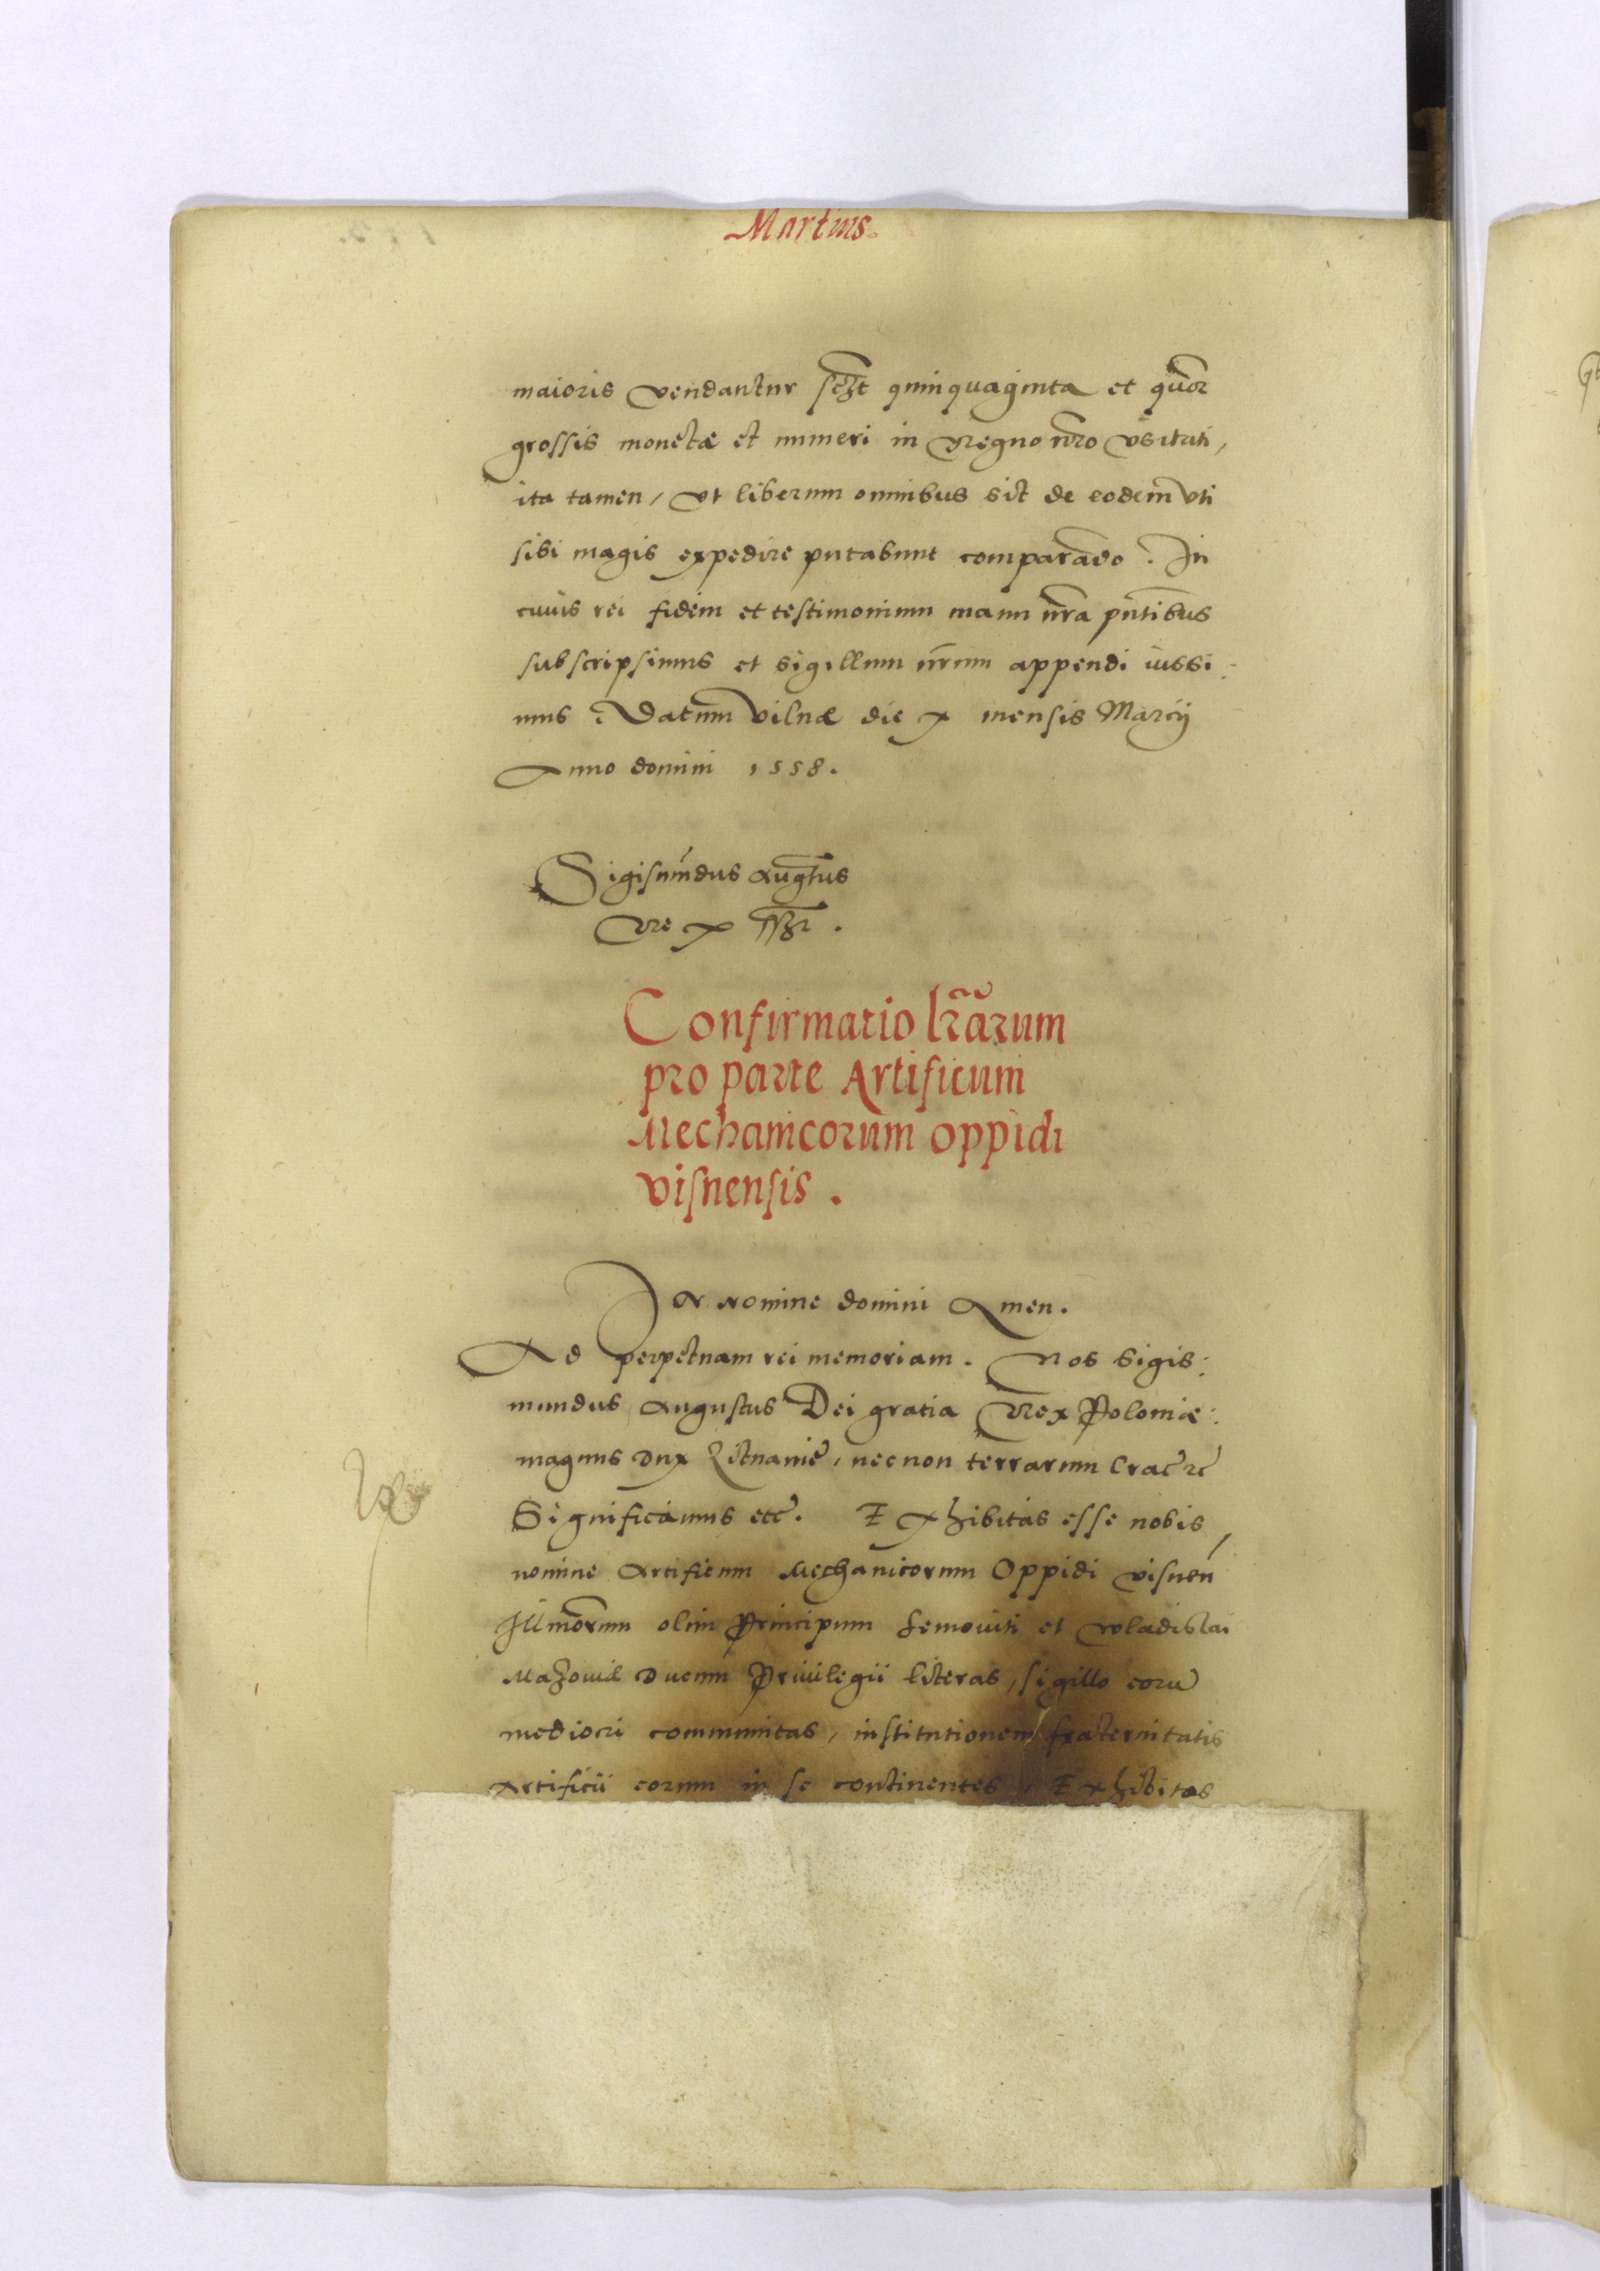 Martius.
maioris vendantur sczt quinquaginta et quor
grossis monetæ et numeri in Regno nro vsitati,
ita tamen, vt liberum omnibus sit de eodem vti
sibi magis expedire putabunt comparando. In
cuius rei fidem et testimonium manu nra pntibus
subscripsimus et sigillum nrum appendi iussi:
mus. Datum Vilnæ die x mensis Marcij
Anno domini 1558.
Sigismundus Augtus
Rex sszt.
Confirmatio lrarum
pro parte Artificum
Mechanicorum oppidi
visnensis.
In nomine domini Amen.
Ad perpetuam rei memoriam. Nos Sigis:
mundus Augustus Dei gratia Rex Poloniæ:
magnus Dux Lituanie, necnon terrarum Crac etc
Significamus etc. Exhibitas esse nobis
nomine Artificum Mechanicorum Oppidi visnen
Illmorum olim Principum Semoviti et Wladislai
Mazovie Ducum Privilegii literas, sigillo eoru
mediocri communitas, institutionem fraternitatis
Artificii eorum in se continentes, Exhibitas